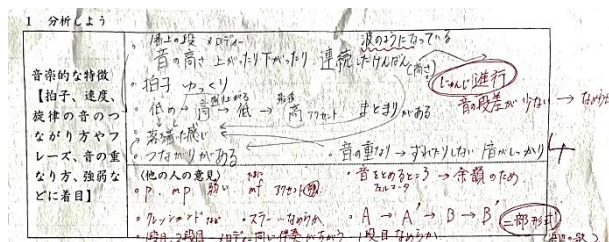 1 分析しよう
音楽的な特徴
【拍子、速度、
旋律の音のつ
ながり方やフ
レーズ、音の重
なり方、強弱な
どに着目】
メロディー 波のようになっている
・音の高さ 上がったり下がったり 連続したけんばん(高さ)
じゅんじ進行
・拍子 ゆっくり
音の段差が少ない → なめらか
・低め → 高 → 低 → 高 アクセント まとまりがある
・落ち着いた感じ
・つながりがある ・音の重なり → ずれたりしない 音がしっかり
(他の人の意見)
・p. mp 弱い mf アクセント 強
・音をとめるところ → 余韻のため
フェルマータ
・クレッシェンドなど ・スラー なめらか
・A → A' → B → B' 二部形式
・1段目、2段目 メロディー同じ 伴奏がちがう 1段目なめらか